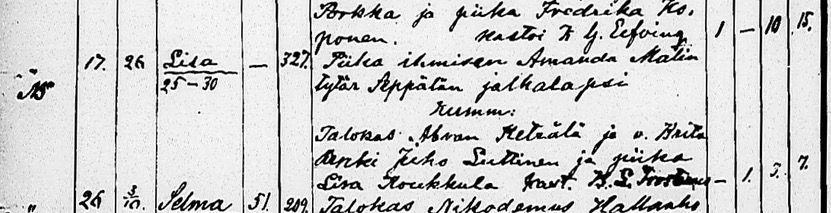 Porkka ja piika Fredrika Ko-
ponen. Kastoi K G. Eefving 1 — 10 15.
"15 17. 26 Lisa — 327. Piika ihmisen Amanda Matin
25—30 tytär Seppätän jalkalapsi
Kumm:
Talokas Abram ja v. Brita
Renki Juho Luttinen ja piika
Lisa Koukkula kast. — 1. 3. 7.
" 26 3/10. Selma 51. 209. Talokas Nikodemus